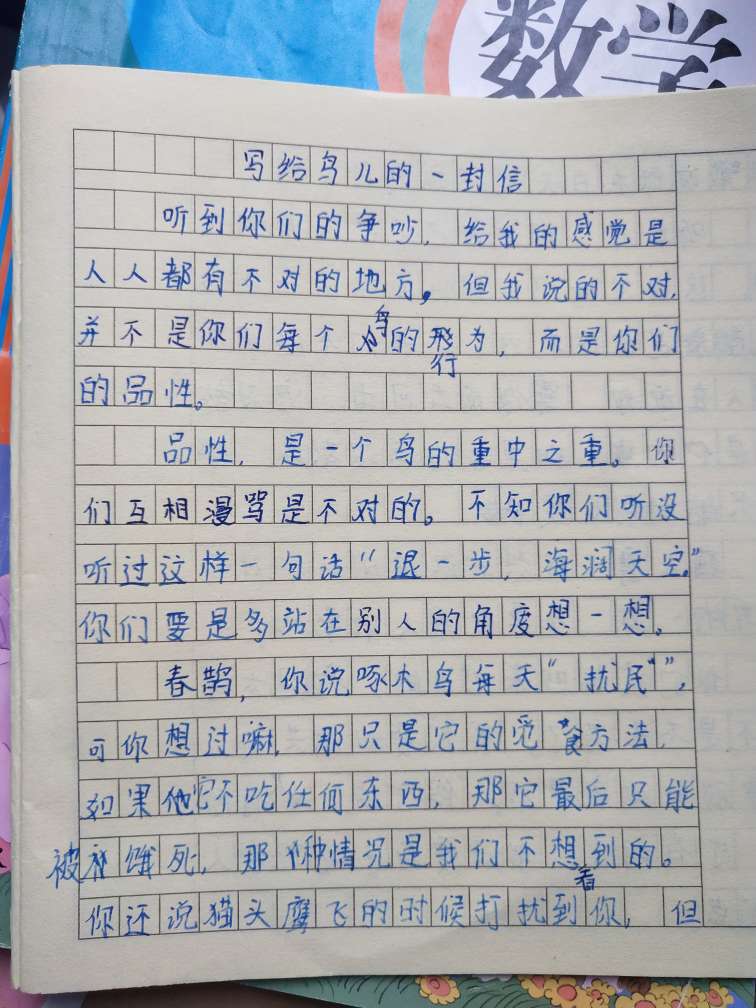 数学
写给鸟儿的一封信
听到你们的争吵，给我的感觉是
人人都有不对的地方，但我说的不对，
并不是你们每个鸟的行为，而是你们
的品性。
品性，是一个鸟的重中之重。你
们互相漫骂是不对的。不知你们听没
听过这样一句话“退一步，海阔天空。”
你们要是多站在别人的角度想一想。
春鹊，你说啄木鸟每天“扰民”，
可你想过嘛，那只是它的觅食方法，
如果它不吃任何东西，那它最后只能
被饿死，那种情况是我们不想看到的。
你还说猫头鹰飞的时候打扰到你，但